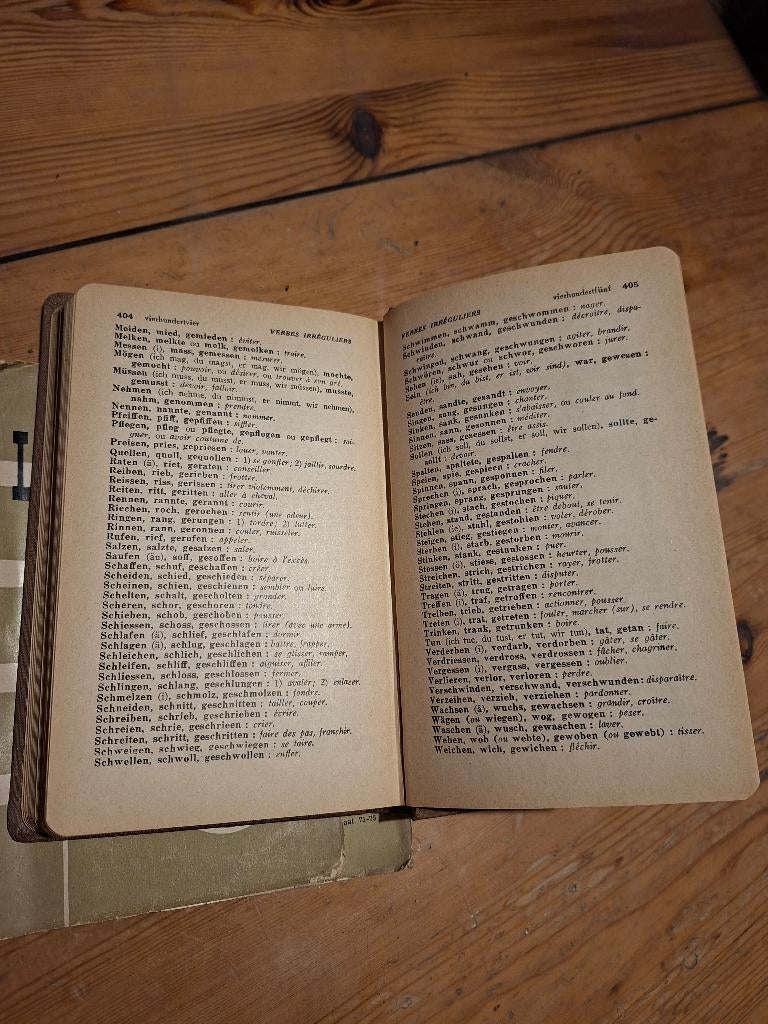 404 vierhundertvier VERBES IRRÉGULIERS
Meiden, mied, gemieden : éviter.
Melken, melkte ou molk, gemolken : traire.
Messen (i), mass, gemessen : mesurer.
Mögen (ich mag, du magst, er mag, wir mögen), mochte,
gemocht : pouvoir, ou désirer, ou trouver à son gré.
Müssen (ich muss, du musst, er muss, wir müssen), musste,
gemusst : devoir, falloir.
Nehmen (ich nehme, du nimmst, er nimmt, wir nehmen),
nahm, genommen : prendre.
Nennen, nannte, genannt : nommer.
Pfeifen, pfiff, gepfiffen : siffler.
Pflegen, pflog ou pflegte, gepflogen ou gepflegt : soi-
gner, ou avoir coutume de.
Preisen, pries, gepriesen : louer, vanter.
Quellen, quoll, gequollen : 1) se gonfler; 2) jaillir, sourdre.
Raten (ä), riet, geraten : conseiller.
Reiben, rieb, gerieben : frotter.
Reissen, riss, gerissen : tirer violemment, déchirer.
Reiten, ritt, geritten : aller à cheval.
Rennen, rannte, gerannt : courir.
Riechen, roch, gerochen : sentir (une odeur).
Ringen, rang, gerungen : 1) tordre; 2) lutter.
Rinnen, rann, geronnen : couler, ruisseler.
Rufen, rief, gerufen : appeler.
Salzen, salzte, gesalzen : saler.
Saufen (äu), soff, gesoffen : boire à l'excès.
Schaffen, schuf, geschaffen : créer.
Scheiden, schied, geschieden : séparer.
Scheinen, schien, geschienen : sembler ou luire.
Schelten, schalt, gescholten : gronder.
Scheren, schor, geschoren : tondre.
Schieben, schob, geschoben : pousser.
Schiessen, schoss, geschossen : tirer (avec une arme).
Schlafen (ä), schlief, geschlafen : dormir.
Schlagen (ä), schlug, geschlagen : battre, frapper.
Schleichen, schlich, geschlichen : se glisser, ramper.
Schleifen, schliff, geschliffen : aiguiser, affiler.
Schliessen, schloss, geschlossen : fermer.
Schlingen, schlang, geschlungen : 1) avaler; 2) enlacer.
Schmelzen (i), schmolz, geschmolzen : fondre.
Schneiden, schnitt, geschnitten : tailler, couper.
Schreiben, schrieb, geschrieben : écrire.
Schreien, schrie, geschrieen : crier.
Schreiten, schritt, geschritten : faire des pas, franchir.
Schweigen, schwieg, geschwiegen : se taire.
Schwellen, schwoll, geschwollen : enfler.
VERBES IRRÉGULIERS vierhundertfünf 405
Schwimmen, schwamm, geschwommen : nager.
Schwinden, schwand, geschwunden : décroître, dispa-
raître.
Schwingen, schwang, geschwungen : agiter, brandir.
Schwören, schwur ou schwor, geschworen : jurer.
Sehen (ie), sah, gesehen : voir.
Sein (ich bin, du bist, er ist, wir sind), war, gewesen :
être.
Senden, sandte, gesandt : envoyer.
Singen, sang, gesungen : chanter.
Sinken, sank, gesunken : s'abaisser, ou couler au fond.
Sinnen, sann, gesonnen : méditer.
Sitzen, sass, gesessen : être assis.
Sollen (ich soll, du sollst, er soll, wir sollen), sollte, ge-
sollt : devoir.
Spalten, spaltete, gespalten : fendre.
Speien, spie, gespieen : cracher.
Spinnen, spann, gesponnen : filer.
Sprechen (i), sprach, gesprochen : parler.
Springen, sprang, gesprungen : sauter.
Stechen (i), stach, gestochen : piquer.
Stehen, stand, gestanden : être debout, se tenir.
Stehlen (ie), stahl, gestohlen : voler, dérober.
Steigen, stieg, gestiegen : monter, avancer.
Sterben (i), starb, gestorben : mourir.
Stinken, stank, gestunken : puer.
Stossen (ö), stiess, gestossen : heurter, pousser.
Streichen, strich, gestrichen : rayer, frotter.
Streiten, stritt, gestritten : disputer.
Tragen (ä), trug, getragen : porter.
Treffen (i), traf, getroffen : rencontrer.
Treiben, trieb, getrieben : actionner, pousser.
Treten (i), trat, getreten : fouler, marcher (sur), se rendre.
Trinken, trank, getrunken : boire.
Tun (ich tue, du tust, er tut, wir tun), tat, getan : faire.
Verderben (i), verdarb, verdorben : gâter, se gâter.
Verdriessen, verdross, verdrossen : fâcher, chagriner.
Vergessen (i), vergass, vergessen : oublier.
Verlieren, verlor, verloren : perdre.
Verschwinden, verschwand, verschwunden : disparaître.
Verzeihen, verzieh, verziehen : pardonner.
Wachsen (ä), wuchs, gewachsen : grandir, croître.
Wägen (ou wiegen), wog, gewogen : peser.
Waschen (ä), wusch, gewaschen : laver.
Weben, wob (ou webte), gewoben (ou gewebt) : tisser.
Weichen, wich, gewichen : fléchir.
71-75